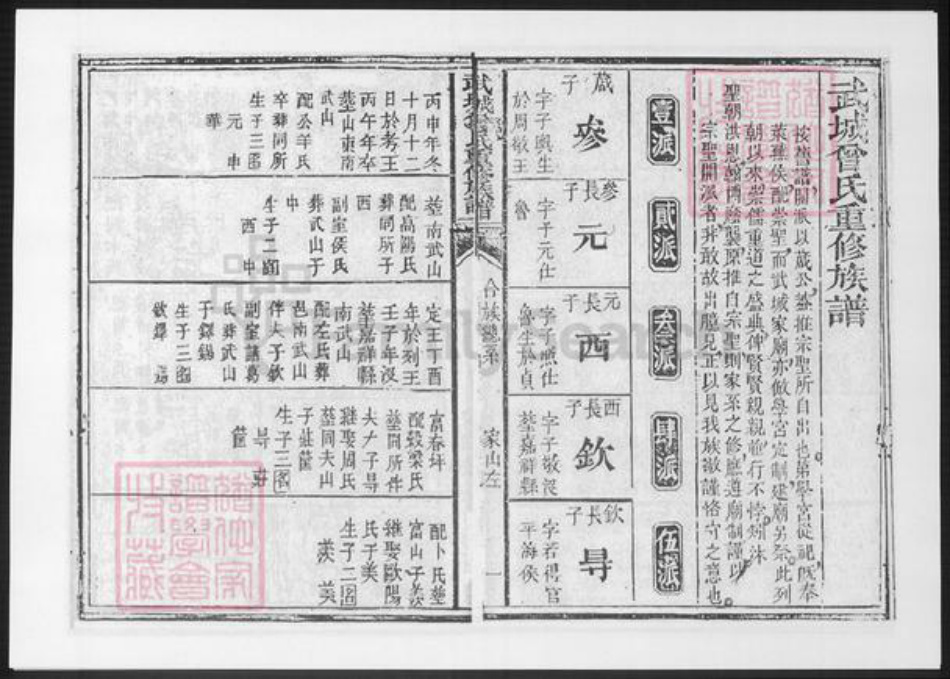 武城曾氏重修族譜
按舊譜開派以蒧公蓋推宗聖所自出也第學宮從祀旣奉
萊蕪侯配崇聖而武城家廟亦倣學宮定制建廟另祭此列
朝以來崇儒重道之盛典俾賢賢親親並行不悖矧沐
聖朝洪恩翰博蔭襲原推自宗聖則家乘之修應遵廟制謹以
宗聖開派者非敢故出臆見正以見我族徽謹恪守之意也
壹派
貳派
叁派
肆派
伍派
蒧子
參
字子輿生
於周敬王
參長子
元
字子元仕
魯
元長子
西
字子照仕
魯生於貞
西長子
欽
字子敬歿
塟嘉祥縣
欽長子
尋
字若得官
平海侯
武城曾氏重修族譜
合族總系
家山左
一
丙申年冬
十月十二
日於考王
丙午年卒
塟山東南
武山
配公羊氏
卒塟同所
生子三
元 申
華
塟南武山
配高陽氏
葬同所子
西
副室侯氏
葬武山子
申
生子二
西 申
定王丁酉
年於列王
壬子年歿
塟嘉祥縣
南武山
配左氏葬
邑南武山
側夫子欽
副室諸葛
氏葬武山
子鐸錫
生子三
欽鐸 錫
富春坪
配穀梁氏
塟同所
夫子子尋
繼娶周氏
塟同夫山
子莊
生子三
尋 莊
配卜氏塟
富山子羨
繼娶歐陽
氏子美
生子二
羨 美